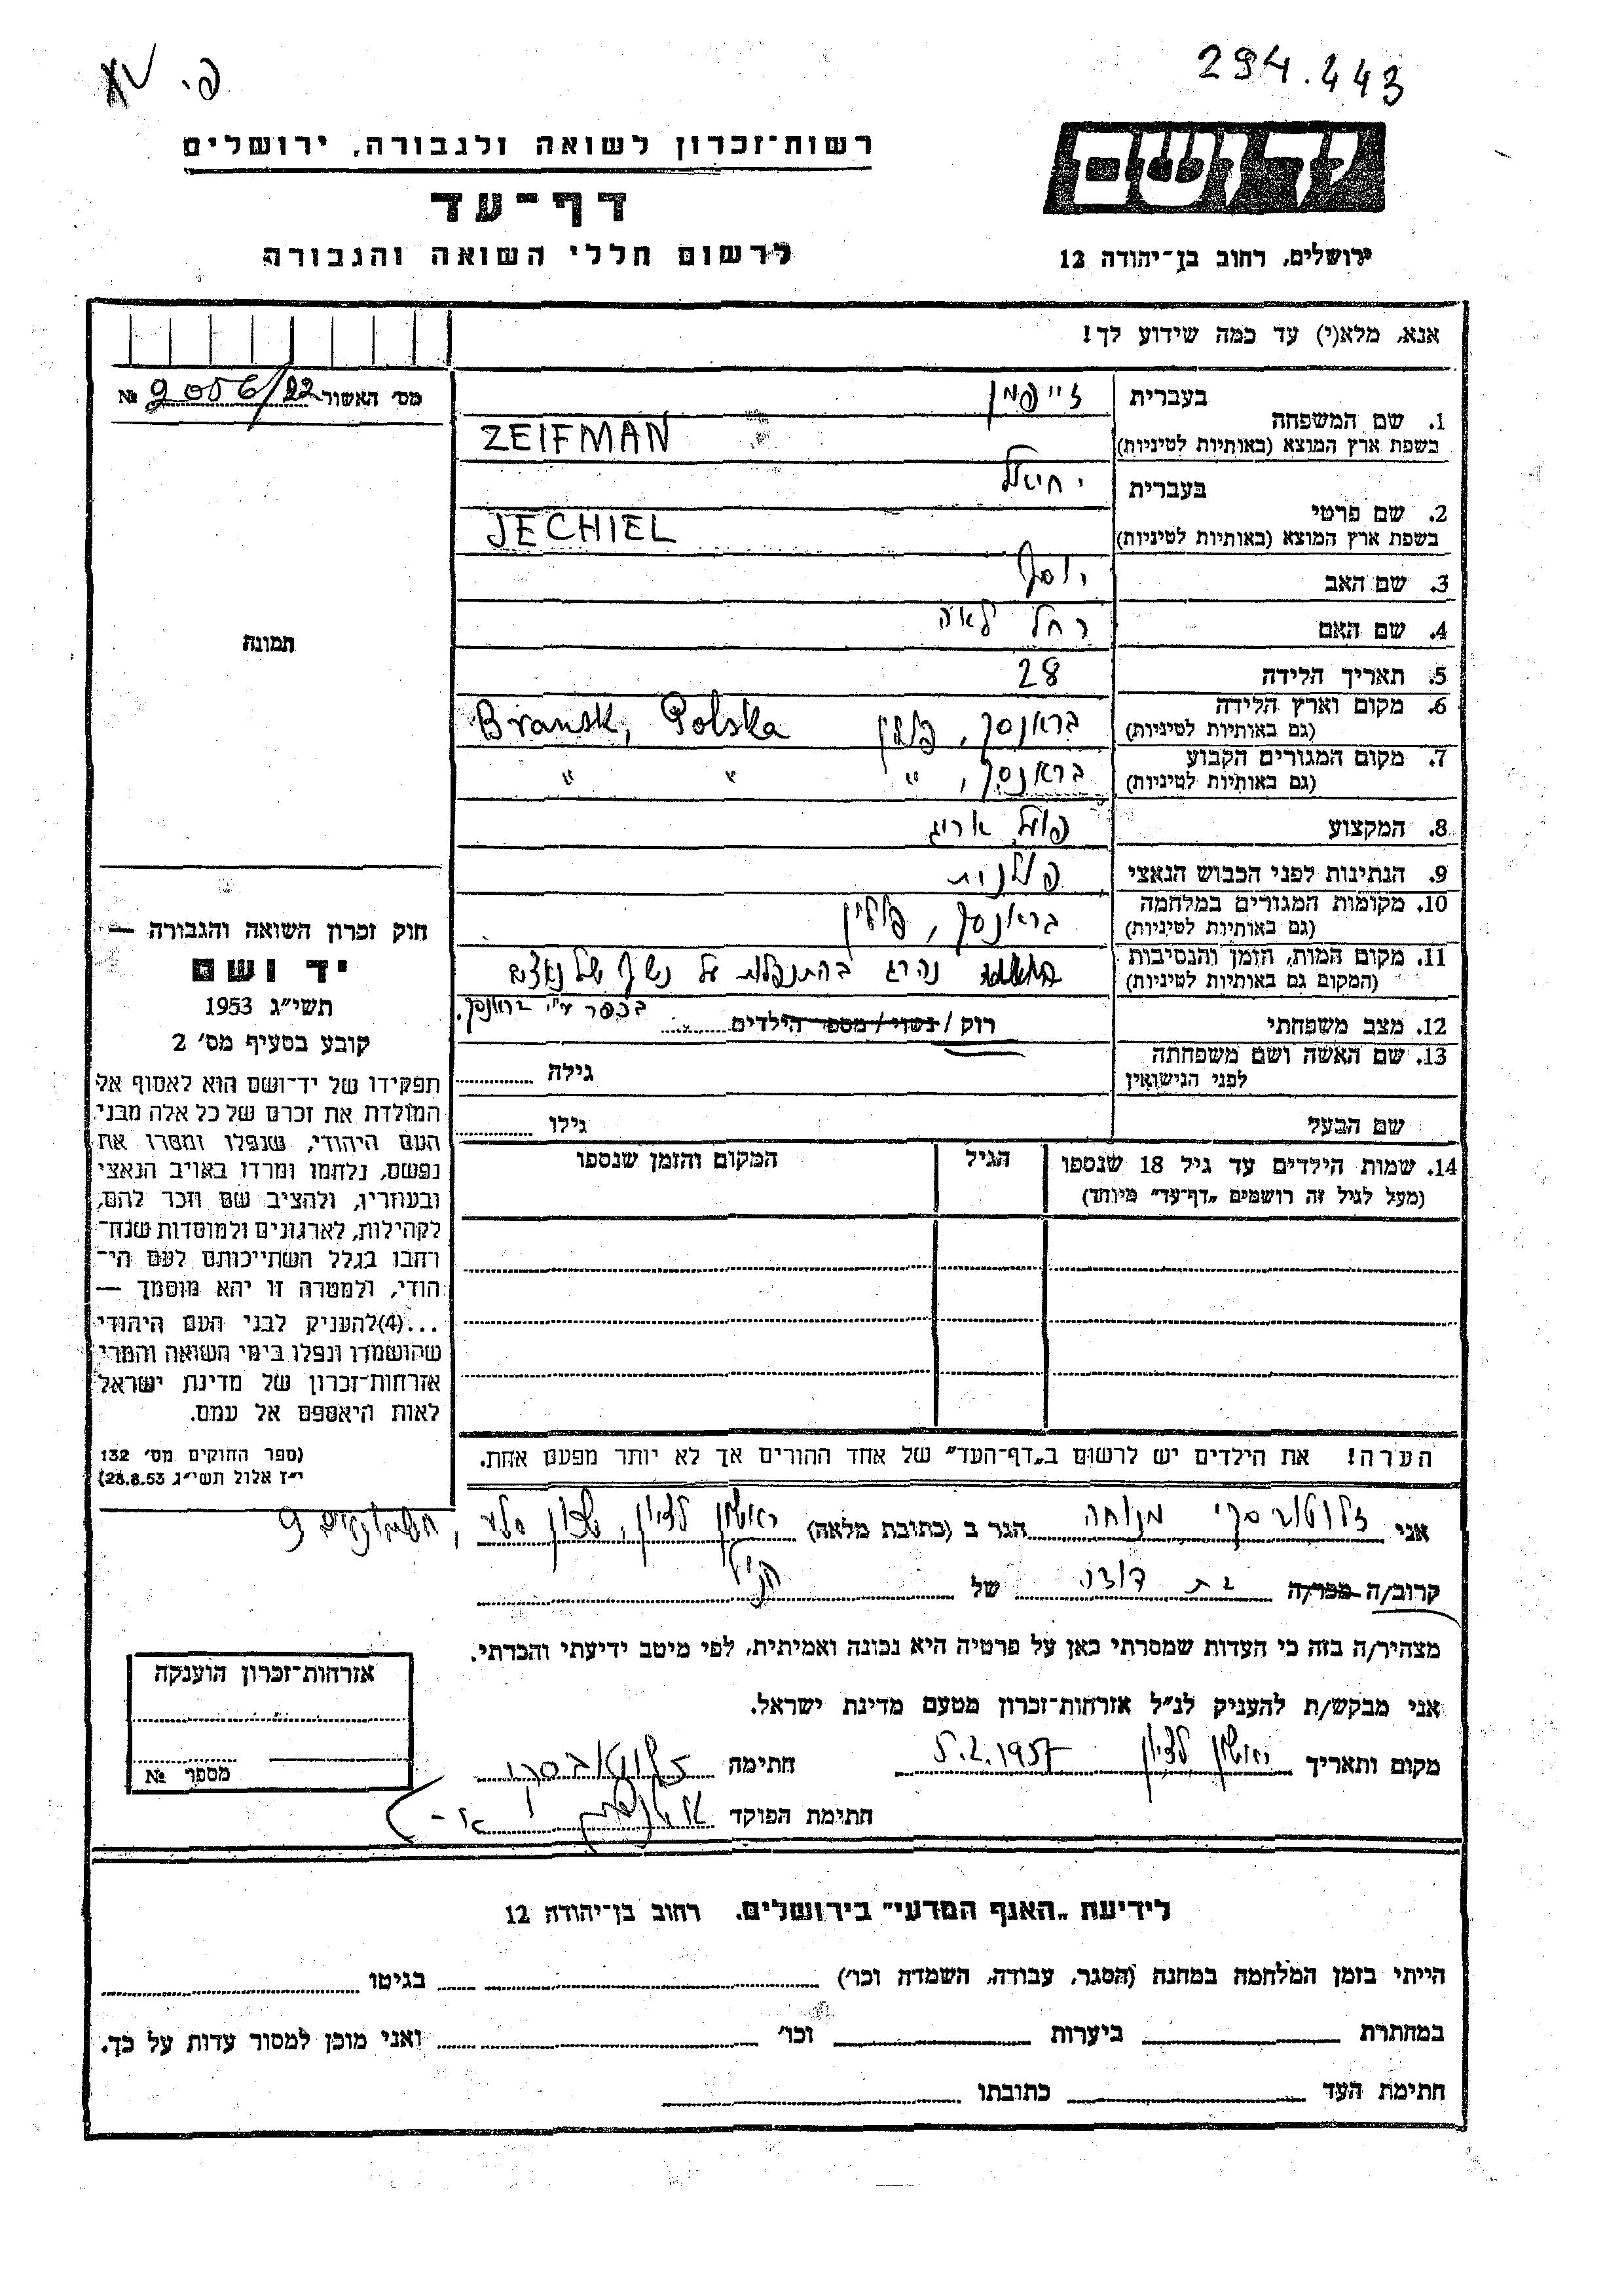 294.443
פ.
רשות־זכרון לשואה ולגבורה, ירושלים
דף־עד
לרשום חללי השואה והגבורה
יד ושם
ירושלים, רחוב בן־יהודה 12
אנא, מלא(י) עד כמה שידוע לך!
מס׳ האשור 2056/22 №
תמונה
בעברית זייפמן
1. שם המשפחה
בשפת ארץ המוצא (באותיות לטיניות) ZEIFMAN
בעברית יחיאל
2. שם פרטי
בשפת ארץ המוצא (באותיות לטיניות) JECHIEL
3. שם האב יוסף
4. שם האם רחל לאה
5. תאריך הלידה 28
6. מקום וארץ הלידה בראנסק, פולין Bransk, Polska
(גם באותיות לטיניות)
7. מקום המגורים הקבוע בראנסק, " " "
(גם באותיות לטיניות)
8. המקצוע פועל אריג
9. הנתינות לפני הכבוש הנאצי פולנית
10. מקומות המגורים במלחמה בראנסק, פולין
(גם באותיות לטיניות)
11. מקום המות, הזמן והנסיבות נהרג בהתנפלות על נשף של נאצים
(המקום גם באותיות לטיניות) בכפר ע"י בראנסק.
12. מצב משפחתי רוק / נשוי / מספר הילדים
13. שם האשה ושם משפחתה
לפני הנישואין גילה
שם הבעל גילו
14. שמות הילדים עד גיל 18 שנספו הגיל המקום והזמן שנספו
(מעל לגיל זה רושמים „דף־עד״ מיוחד)
חוק זכרון השואה והגבורה —
יד ושם
תשי״ג 1953
קובע בסעיף מס׳ 2
תפקידו של יד־ושם הוא לאסוף אל
המולדת את זכרם של כל אלה מבני
העם היהודי, שנפלו ומסרו את
נפשם, נלחמו ומרדו באויב הנאצי
ובעוזריו, ולהציב שם וזכר להם,
לקהילות, לארגונים ולמוסדות שנח־
רחבו בגלל השתייכותם לעם הי־
הודי, ולמטרה זו יהא מוסמך —
...(4)להעניק לבני העם היהודי
שהושמדו ונפלו בימי השואה והמרי
אזרחות־זכרון של מדינת ישראל
לאות היאספם אל עמם.
(ספר החוקים מס׳ 132
י״ז אלול תשי״ג 28.8.53)
הערה! את הילדים יש לרשום ב„דף־העד״ של אחד ההורים אך לא יותר מפעם אחת.
אני זלוטובסקי מנוחה הגר ב (כתובת מלאה) ראשון לציון, שכון סלע, 9
קרוב/ה מכר/ה בת דודו של הנ"ל
מצהיר/ה בזה כי העדות שמסרתי כאן על פרטיה היא נכונה ואמיתית, לפי מיטב ידיעתי והכרתי.
אני מבקש/ת להעניק לנ״ל אזרחות־זכרון מטעם מדינת ישראל.
מקום ותאריך ראשון לציון 5.2.1957 חתימה זלוטובסקי
חתימת הפוקד
אזרחות־זכרון הוענקה
מספר №
לידיעת „האגף המדעי״ בירושלים, רחוב בן־יהודה 12
הייתי בזמן המלחמה במחנה (הסגר, עבודה, השמדה וכו׳) בגיטו
במחתרת ביערות וכו׳ ואני מוכן למסור עדות על כך.
חתימת העד כתובתו